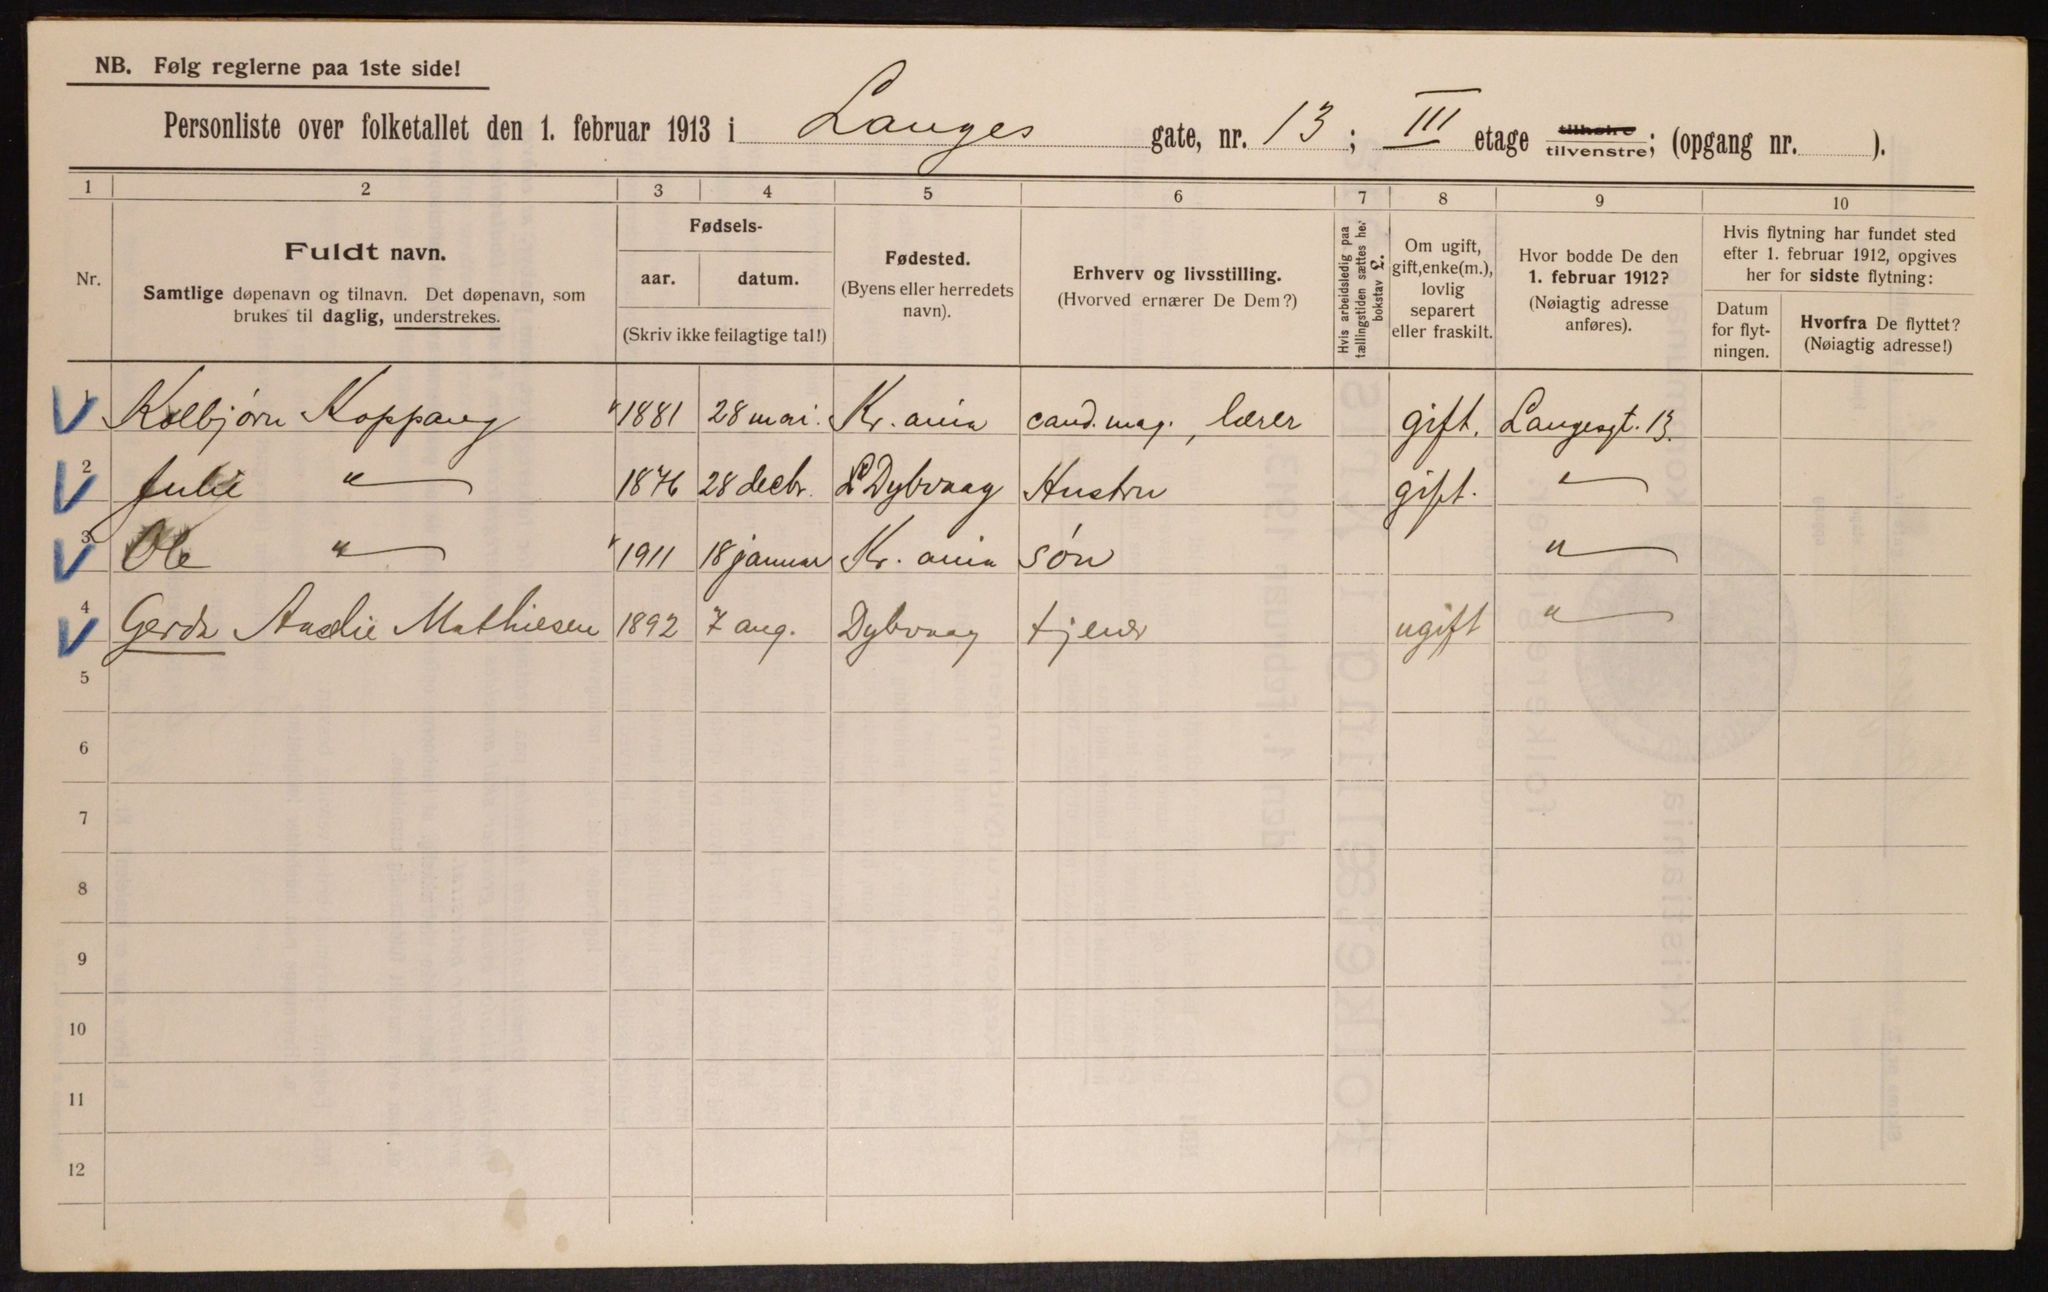 NB. Følg reglerne paa 1ste side!
Personliste over folketallet den 1. februar 1913 i Langes gate, nr. 13; III etage tilhøire tilvenstre; (opgang nr. ).
1 2 3 4 5 6 7 8 9 10
Nr.
Fuldt navn.
Samtlige døpenavn og tilnavn. Det døpenavn, som
brukes til daglig, understrekes.
Fødsels-
aar. datum.
(Skriv ikke feilagtige tal!)
Fødested.
(Byens eller herredets
navn).
Erhverv og livsstilling.
(Hvorved ernærer De Dem?)
Hvis arbeidsledig paa
tællingstiden sættes her
bokstav L.
Om ugift,
gift, enke(m.),
lovlig
separert
eller fraskilt.
Hvor bodde De den
1. februar 1912?
(Nøiagtig adresse
anføres).
Hvis flytning har fundet sted
efter 1. februar 1912, opgives
her for sidste flytning:
Datum
for flyt-
ningen.
Hvorfra De flyttet?
(Nøiagtig adresse!)
1 Kolbjørn Koppang 1881 28 mai. Kr. ania cand. mag., lærer gift. Langesgt. 13.
2 Julie " 1876 28 decbr. Dybvaag Hustru gift. "
3 Ole " 1911 18 januar Kr. ania søn "
4 Gerda Mathiesen 1892 7 aug. Dybvaag tjener ugift "
5
6
7
8
9
10
11
12